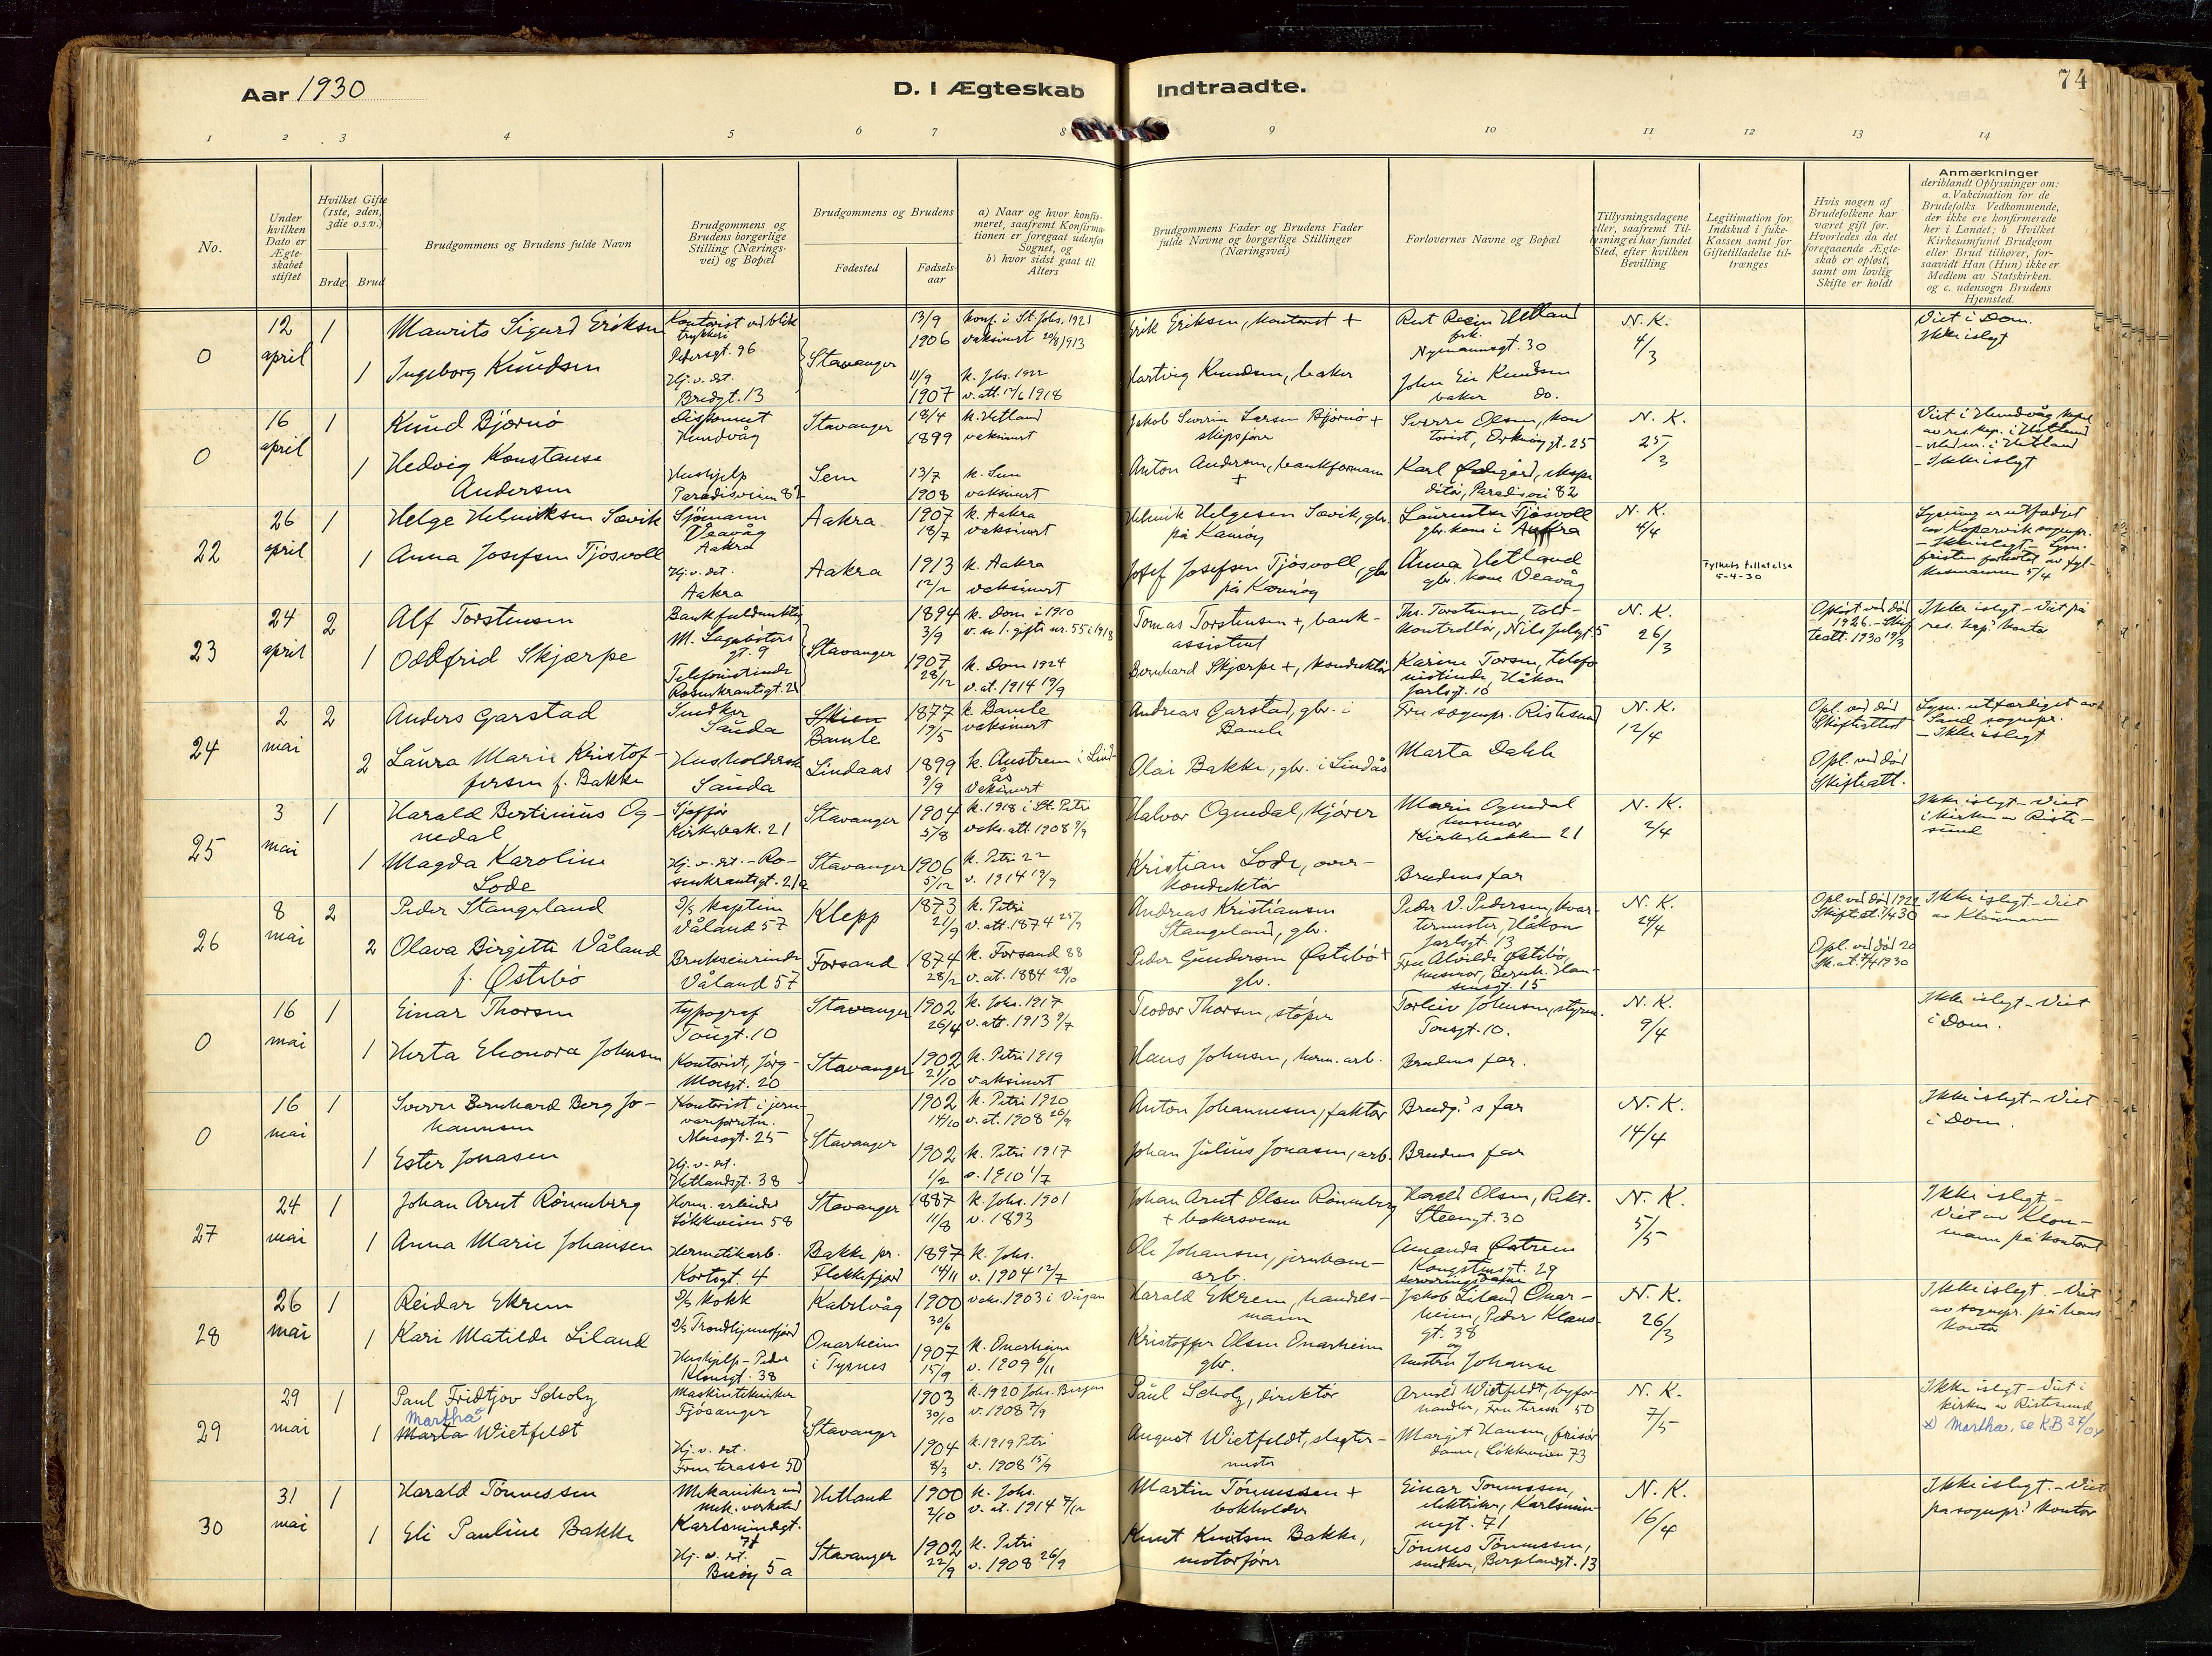 74
Aar 1930
D. I Ægteskab Indtraadte.
1 2 3 4 5 6 7 8 9 10 11 12 13 14
No.
Under
hvilken
Dato er
Ægte-
skabet
stiftet
Hvilket Gifte
(1ste, 2den,
3die o.s.v.)
Brdg. Brud
Brudgommens og Brudens fulde Navn
Brudgommens og
Brudens borgerlige
Stilling (Nærings-
vei) og Bopæl
Brudgommens og Brudens
Fødested
Fødsels-
aar
a) Naar og hvor konfir-
meret, saafremt Konfirma-
tionen er foregaat udenfor
Sognet, og
b) hvor sidst gaat til
Alters
Brudgommens Fader og Brudens Fader
fulde Navne og borgerlige Stillinger
(Næringsvei)
Forlovernes Navne og Bopæl
Tillysningsdagene
eller, saafremt Til-
lysning ei har fundet
Sted, efter hvilken
Bevilling
Legitimation for
Indskud i fuke-
Kassen samt for
Giftetilladelse til-
trænges
Hvis nogen af
Brudefolkene har
været gift før.
Hvorledes da det
foregaaende Ægte-
skab er opløst,
samt om lovlig
Skifte er holdt
Anmærkninger
deriblandt Oplysninger om:
a. Vakcination for de
Brudefolks Vedkommende,
der ikke ere konfirmerede
her i Landet; b Hvilket
Kirkesamfund Brudgom
eller Brud tilhører, for-
saavidt Han (Hun) ikke er
Medlem av Statskirken.
og c. udensogn Brudens
Hjemsted.
0
12
april
1
Maurits Sigurd Eriksen
Kontorist ved blik
trykkeri
Pedersgt. 96
Stavanger
13/9
1906
konf. i St. Johs. 1921
vaksinert 20/8 1913
Erik Eriksen, kontorist +
Hetland
frk.
Nymannsgt. 30
N. K.
4/3
Viet i Dom.
Ikke islegt
1
Ingeborg Knudsen
Hj. v. det.
Bredgt. 13
11/9
1907
k. Johs. 1922
v. att. 1918
Hartvig Knudsen, baker
John Knudsen
baker do.
0
16
april
1
Knud Bjørnø
disponent
Hundvåg
Stavanger
18/4
1899
k. Hetland
vaksinert
Jakob Severin Larsen Bjørnø +
skipsfører
Sverre Olsen, kon
torist, gt. 25
N. K.
25/3
Viet i Hundvåg kapel
av res. kap. i Hetland
i Hetland
- Ikke islegt
1
Hedvig Konstanse
Andersen
Hushjelp
Paradisveien 82
Sem
13/7
1908
k. Sem
vaksinert
Anton Andersen, bankformann
+
Karl Ødegård, ekspe
ditør, Paradisvei 82
22
26
april
1
Helge Helmiksen Sævik
Sjømann
Veavåg
Aakra
Aakra
1907
18/7
k. Aakra
vaksinert
Helmik Helgesen Sævik, gbr.
på Karmøy
Laurentse Tjøsvoll
gbr. kone i Aakra
N. K.
4/4
Fylkets tillatelse
5-4-30
Lysning er utfærdiget
av Kopervik sognepr.
- Ikke islegt - Lysn.
fristen forkortet av fyl-
kesmannen 5/4
1
Anna Josefsen Tjøsvoll
Hj. v. det.
Aakra
Aakra
1913
12/2
k. Aakra
vaksinert
Josef Josefsen Tjøsvoll, gbr
på Karmøy
Anna Hetland
gbr. kone Veavåg
23
24
april
2
Alf Torstensen
Bankfuldmektig
M. Lagabøters
gt. 9
Stavanger
1894
3/9
k. Dom i 1910
v. u. l. gifte nr. 55 i 1918
Tomas Torstensen +, bank-
assistent
Ths. Torstensen, told-
kontrollør, Nils Juelsgt. 5
N. K.
26/3
Opløst ved død
1926. - Skif
teatt. 1930 19/3
Ikke islegt - Viet på
res. kap.s kontor
1
Oddfrid Skjærpe
Telefonistinde
Rosenkrantzgt. 21
1907
28/12
k. Dom 1924
v. at. 1914 19/9
Bernhard Skjærpe +, konduktør
Karine Torsen, telefo
nistinde, Håkon
Jarlsgt. 10
24
2
mai
2
Anders Garstad
Snedker
Sauda
Skien
Bamle
1877
19/5
k. Bamle
vaksinert
Andreas Garstad, gbr. i
Bamle
Fru sognepr. Ristesund
N. K.
12/4
Opl. ved død
Skifteattest
Lysn. utfærdiget av
Sand sognepr.
- Ikke islegt
2
Laura Marie Kristof-
fersen f. Bakke
Husholderske
Sauda
Lindaas
1899
9/9
k. Austrem i Lind
ås
Vaksinert
Olai Bakke, gbr. i Lindås
Marta Dahle
Opl. ved død
Skifteatt.
25
3
mai
1
Harald Bertinius Og-
nedal
Sjafför
Kirkebak. 21
Stavanger
1904
5/8
k. 1918 i St. Petri
vaks. att. 1908 9/9
Halvor Ognedal, kjører
Marie Ognedal
husmor
Kirkebakken 21
N. K.
2/4
Ikke islegt - Viet
i kirken av Riste-
sund
1
Magda Karoline
Lode
Hj. v. det. - Ro-
senkrantzgt. 21a
Stavanger
1906
5/12
k. Petri 22
v. 1914 19/9
Kristian Lode, over-
konduktør
Brudens far
26
8
mai
2
Peder Stangeland
D/S kaptein
Våland 57
Klepp
1873
21/9
k. Petri
v. att. 1874 25/9
Andreas Kristiansen
Stangeland, gbr.
Peder V. Pedersen, kvar-
termester, Håkon
Jarlsgt. 13
N. K.
24/4
Opl. ved død 1922
Skifteat. 1/4 30
Ikke islegt - Viet
av Klaumann
2
Olava Birgitte Våland
f. Østebø
Brukseierinde
Våland 57
Forsand
1874
28/2
k. Forsand 88
v. at. 1884 28/10
Peder Gundersen Østebø +
gbr.
Fru Alvilde Østebø,
husmor, Bernh. Han-
sensgt. 15
Opl. ved død 20
Sk. at. 7/4 1930
0
16
mai
1
Einar Thorsen
typograf
Tougt. 10
Stavanger
1902
26/4
k. Johs. 1917
v. att. 1913 9/7
Teodor Thorsen, støper
Torleiv Johnsen, styrm.
Tougt. 10.
N. K.
9/4
Ikke islegt - Viet
i Dom.
1
Herta Eleonora Johnsen
Kontorist, Jörg-
Moegt. 20
Stavanger
1902
21/10
k. Petri 1919
vaksinert
Hans Johnsen, herm. arb.
Brudens far.
0
16
mai
1
Sverre Bernhard Berg Jo-
hannesen
Kontorist i jern-
vareforretn.
Mosegt. 25
Stavanger
1902
14/10
k. Petri 1920
v. at. 1908 26/9
Anton Johannesen, faktor
Brudg.s far
N. K.
14/4
Ikke islegt - Viet
i Dom.
1
Ester Jonasen
Hj. v. det.
Hetlandsgt. 38
1902
1/2
k. Petri 1917
v. 1910 1/7
Johan Julius Jonasen, arb.
Brudens far
27
24
mai
1
Johan Arnt Rönneberg
Herm. arbeider
Løkkeveien 58
Stavanger
1887
11/8
k. Johs. 1901
v. 1893
Johan Arnt Olsen Rönneberg
+ bakersvenn
Harald Olsen, Rekt.
Steengt. 30
N. K.
5/5
Ikke islegt -
Viet av Klau-
mann på kontoret
1
Anna Marie Johansen
Hermetikarb.
Kortsgt. 4
Bakke pr.
Flekkefjord
1897
14/11
k. Johs.
v. 1904 12/7
Ole Johansen, jernbane-
arb.
Amanda Østrem
Kongsteinsgt. 29
serveringsdame
28
26
mai
1
Reidar Ekrem
D/S kokk
D/S Trondhjemsfjord
Kabelvåg
1900
30/6
vaks. 1903 i Vågan
Harald Ekrem, handels-
mann
Jakob Liland Onar-
heim, Peder Klaus-
gt. 38
og
hustru Johanne
N. K.
26/3
Ikke islegt. - Viet
av sognepr. på hans
kontor
1
Kari Matilde Liland
Hushjelp - Peder
Klausgt. 38
Onarheim
i Tysnes
1907
15/9
k. Onarheim
v. 1909 6/11
Kristoffer Olsen Onarheim
gbr.
29
29
mai
1
Paul Fridtjov Scholz
Maskintekniker
Fjøsanger
Stavanger
1903
30/10
k. 1920 Johs. Bergen
v. 1908 7/9
Paul Scholz, direktør
Arnold Wietfeldt, byfor-
handler, Frue terasse 50
N. K.
7/5
Ikke islegt - Viet i
kirken av Ristesund
x) Martha, se KB 37/04
1
Martha x
Marta Wietfeldt
Hj. v. det.
Frue terasse 50
1904
8/3
k. 1919 Petri
v. 1908 15/9
August Wietfeldt, slagter-
mester
Margit Hansen, frisør
dame, Løkkeveien 73
30
31
mai
1
Harald Tönnessen
Mekaniker ved
mek. verksted
Karlsmindegt.
71
Hetland
1900
2/10
k. Johs.
v. at. 1914 7/12
Martin Tönnessen +
bokholder
Einar Tönnessen,
elektriker, Karlsmin-
negt. 71
N. K.
16/4
Ikke islegt. - Viet
på sognepr.s kontor
1
Eli Pauline Bakke
Hj. v. det.
Buöy 5a
Stavanger
1902
22/9
k. Petri
v. 1908 26/9
Knut Knutsen Bakke,
motorfører
Tönnes Tönnessen,
snedker, Bergelandgt. 13